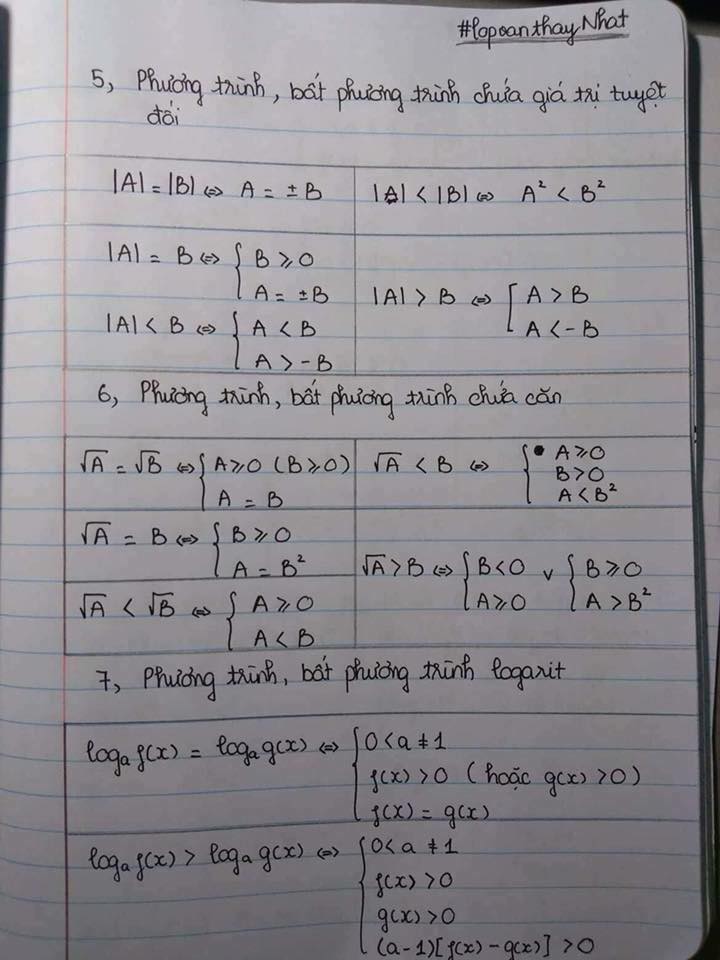 #lopoanthayNhat
5, Phương trình, bất phương trình chứa giá trị tuyệt
đối
|A| = |B| ⇔ A = ±B
|A| < |B| ⇔ A² < B²
|A| = B ⇔ { B ⩾ 0
A = ±B
|A| < B ⇔ { A < B
A > -B
|A| > B ⇔ [ A > B
A < -B
6, Phương trình, bất phương trình chứa căn
√A = √B ⇔ { A ⩾ 0 (B ⩾ 0)
A = B
√A < B ⇔ { A ⩾ 0
B > 0
A < B²
√A = B ⇔ { B ⩾ 0
A = B²
√A < √B ⇔ { A ⩾ 0
A < B
√A > B ⇔ { B < 0 ∨ { B ⩾ 0
A ⩾ 0 A > B²
7, Phương trình, bất phương trình logarit
logₐ f(x) = logₐ g(x) ⇔ { 0 < a ≠ 1
f(x) > 0 (hoặc g(x) > 0)
f(x) = g(x)
logₐ f(x) > logₐ g(x) ⇔ { 0 < a ≠ 1
f(x) > 0
g(x) > 0
(a-1)[f(x) - g(x)] > 0